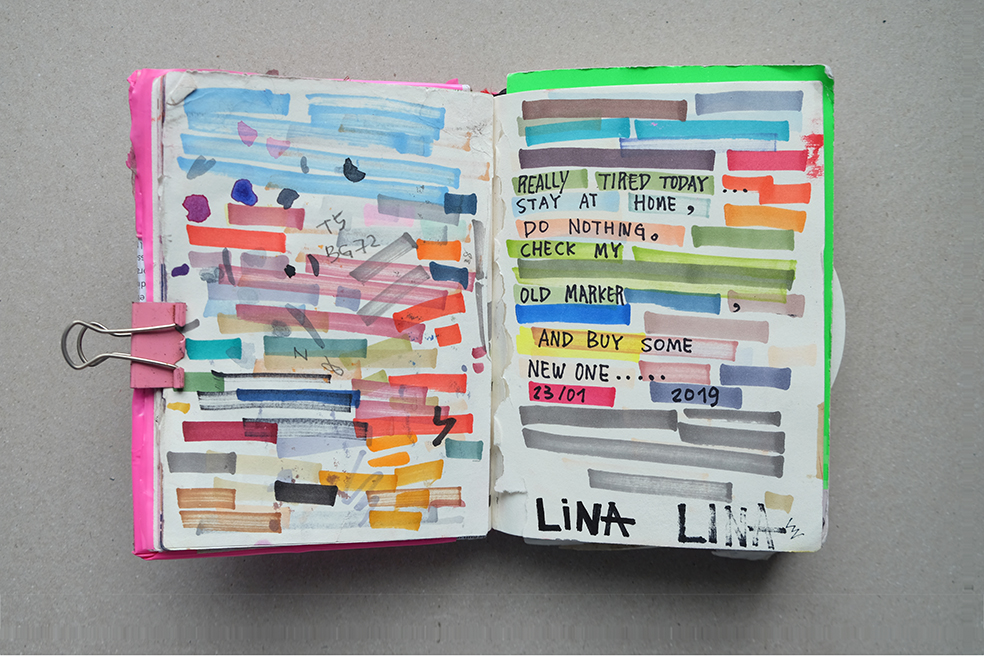 T5
BG72
N
REALLY TIRED TODAY ...
STAY AT HOME,
DO NOTHING.
CHECK MY
OLD MARKER ,
AND BUY SOME
NEW ONE.....
23/01 2019
LiNA LINA